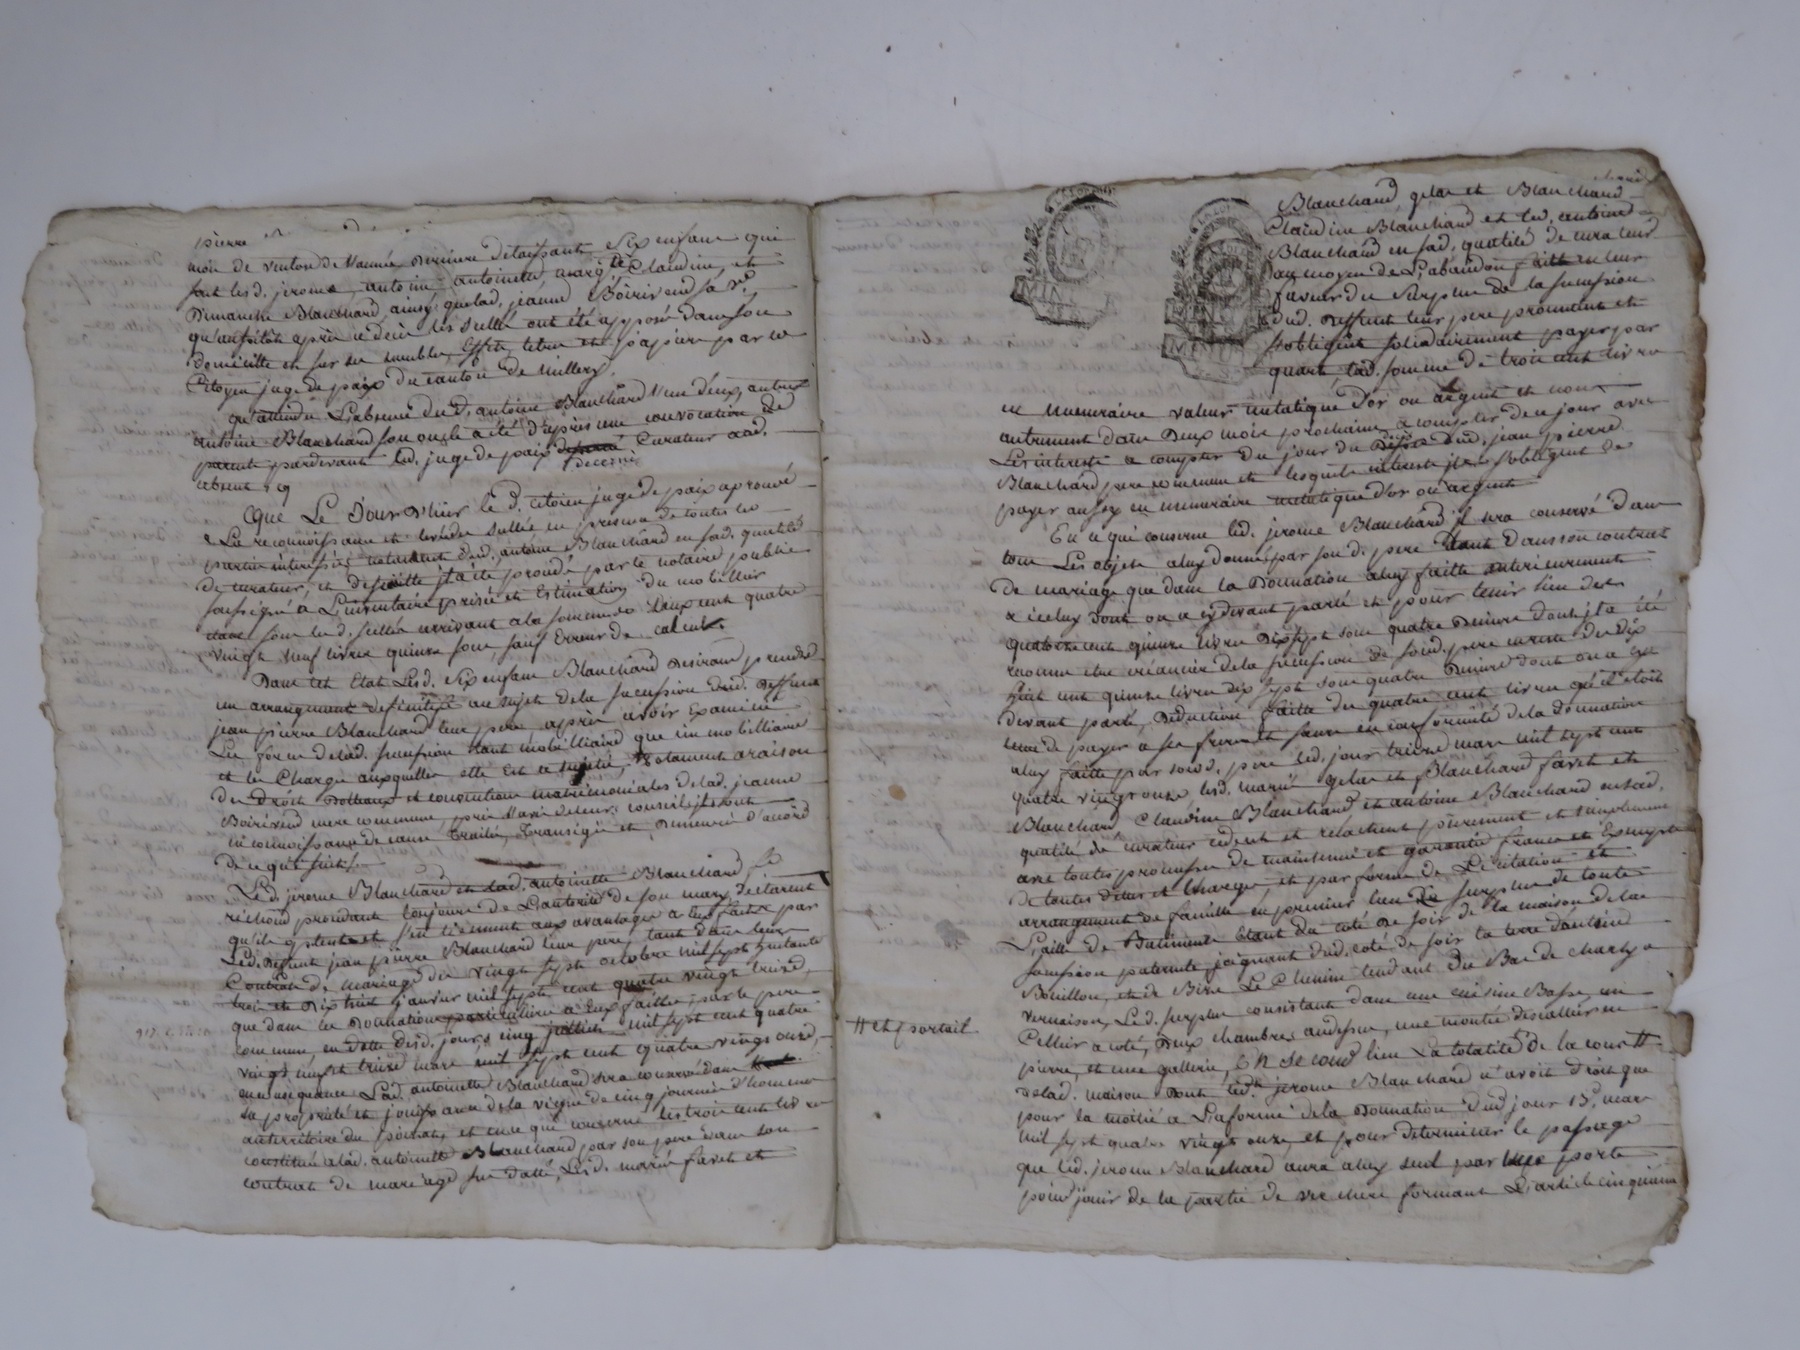 pierre
mois de ventose de l'année Derniere delaissant six enfans qui
sont lesd. jerome, antoine antoinette marg.te Claudine, et
Dimanche Blanchard, ainsy que lad. jeanne Boirivend sa v.e
qu'aussitôt après ce decès les scellés ont été apposé dans son
domicille et sur ses meubles, effets, titres et papiers par le
Citoyen juge de paix du canton de millery.
qu'attendu L'absence dud. antoine Blanchard l'un d'eux, autre
antoine Blanchard son oncle a été d'après une convocation de
parents pardevant led. juge de paix decerné Curateur aud.
decerné
absent
Que Le Jour d'hier le d. citoien juge de paix a prouvé
a La reconnoissance et levée des scellés en presence de toutes les
parties interessées notamment dud. antoine Blanchard en sad. qualité
de curateur, et desuitte il a été procédé par le notaire public
soussigné a L'inventaire prisée et Estimation du mobillier
etant sous lesd. scellés arrivant a la somme de deux cent quatre
vingt neuf livres quinze sous sauf Erreur de calcul.
Dans cet Etat Lesd. six enfans Blanchard Desirant prendre
un arrangement definitif au sujet de la succession dud. deffunt
jean pierre Blanchard leur pere, après avoir Examiné
Les forces de lad. succession tant mobilliaire que immobilliaire
et les Charges auxquelles elle est assujetie, notamment a raison
des droits dotteaux et conventions matrimoniales de lad. jeanne
Boirivend mere commune, pris l'avis de leurs conseils ils ont
en connoissance de cause Traités, Transigés et Demeurés D'accord
de ce qui suit.
Led. jerome Blanchard et lad. antoinette Blanchard f.e
richoud procedant toujours de L'autorité de son mary, déclarent
qu'ils optent et s'en tiennent aux avantages a eux faits par
Led. deffunt jean pierre Blanchard leur pere, tant dans leur
Contrats de mariage des vingt sept octobre mil sept
trois et Dix huit janvier mil sept cent quatre vingt treize,
que dans les Donnations particuliere a Eux faittes par le pere
commun, en datte desd. jours cinq juillet mil sept cent quatre
vingt neuf et treize mars mil sept cent quatre vingt onze,
en consequence Lad. antoinette Blanchard sera conservé dans
sa proprieté et jouissance de la vigne de cinq journées d'hommes
au territoire du et en ce qui concerne les trois cent livres
constitué a lad. antoinette Blanchard par son pere dans son
contrat de mariage sus datté, Lesd. mariés favet et
Blanchard, gelas et Blanchard
Claudine Blanchard et led. antoine
Blanchard en sad. qualité de curateur
au moyen de L'abandon fait en leur
faveur du surplus de la succession
dud. deffunt leur pere promettent et
s'obligent solidairement payer par
quart lad. somme de trois cent livres
en numeraire valeur metalique d'or ou argent et non
autrement dans Deux mois prochains a compter de ce jour avec
Les interests a compter du jour du decès dud. jean pierre
Blanchard pere commun et lesquels interests ils s'obligent de
payer aussy en numeraire metalique d'or ou argent
En ce qui concerne led. jerome Blanchard il sera conservé dans
tous Les objets a luy donnés par son d. pere tant dans son contrat
de mariage que dans la Donnation a luy faitte anterieurement
a iceluy dont on a cy devant parlé et pour tenir lieu des
quatorze cent quinze livres dix sept sous quatre deniers dont il a été
reconnu etre créancier de la succession de sond. pere
huit cent quinze livres dix sept sous quatre deniers dont on a cy
devant parlé, Deduction faitte des quatre cent livres qu'il étoit
tenu de payer a ses freres et sœurs en conformité de la donnation
a luy faitte par sond. pere led. jour treize mars mil sept cent
quatre vingt onze, lesd. mariés gelas et Blanchard favet et
Blanchard, Claudine Blanchard et antoine Blanchard en sad.
qualité de curateur cedent et relachent purement et simplement
avec toutes promesses de maintenue et garantie franc et Exempt
de toutes dettes et charges, et par forme de Licitation et
arrangement de famille en premier lieu Le surplus de toute
L'aille de Batiments étant du coté de soir de la maison de la
succession paternelle joignant dud. coté de soir la terre d'antoine
Bouillon, et de Bize Le Chemin tendant du Bas de charly a
vernaison, Led. surplus consistant dans une cuisine Basse, un
Cellier a coté, Deux chambres audessus, une montée d'escaliers en
# et portail
pierre, et une gallerie, En second lieu La totalité de la cour #
de lad. maison dont led. jerome Blanchard n'avoit droit que
pour la moitié a La forme de la Donnation dud jour 13. mars
mil sept quatre vingt onze, et pour determiner le passage
que led. jerome Blanchard aura a luy seul par une porte
pour jouir de la partie de verchere formant L'article cinquieme